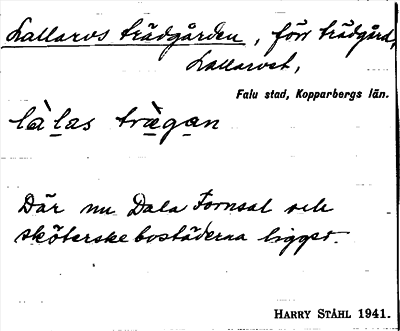 Lallarvs trädgården, förr trädgård,
Lallarvet,
Falu stad, Kopparbergs län.
là las trägan
Där nu Dala Fornsal och
sköterskebostäderna ligger.
HARRY STÅHL 1941.